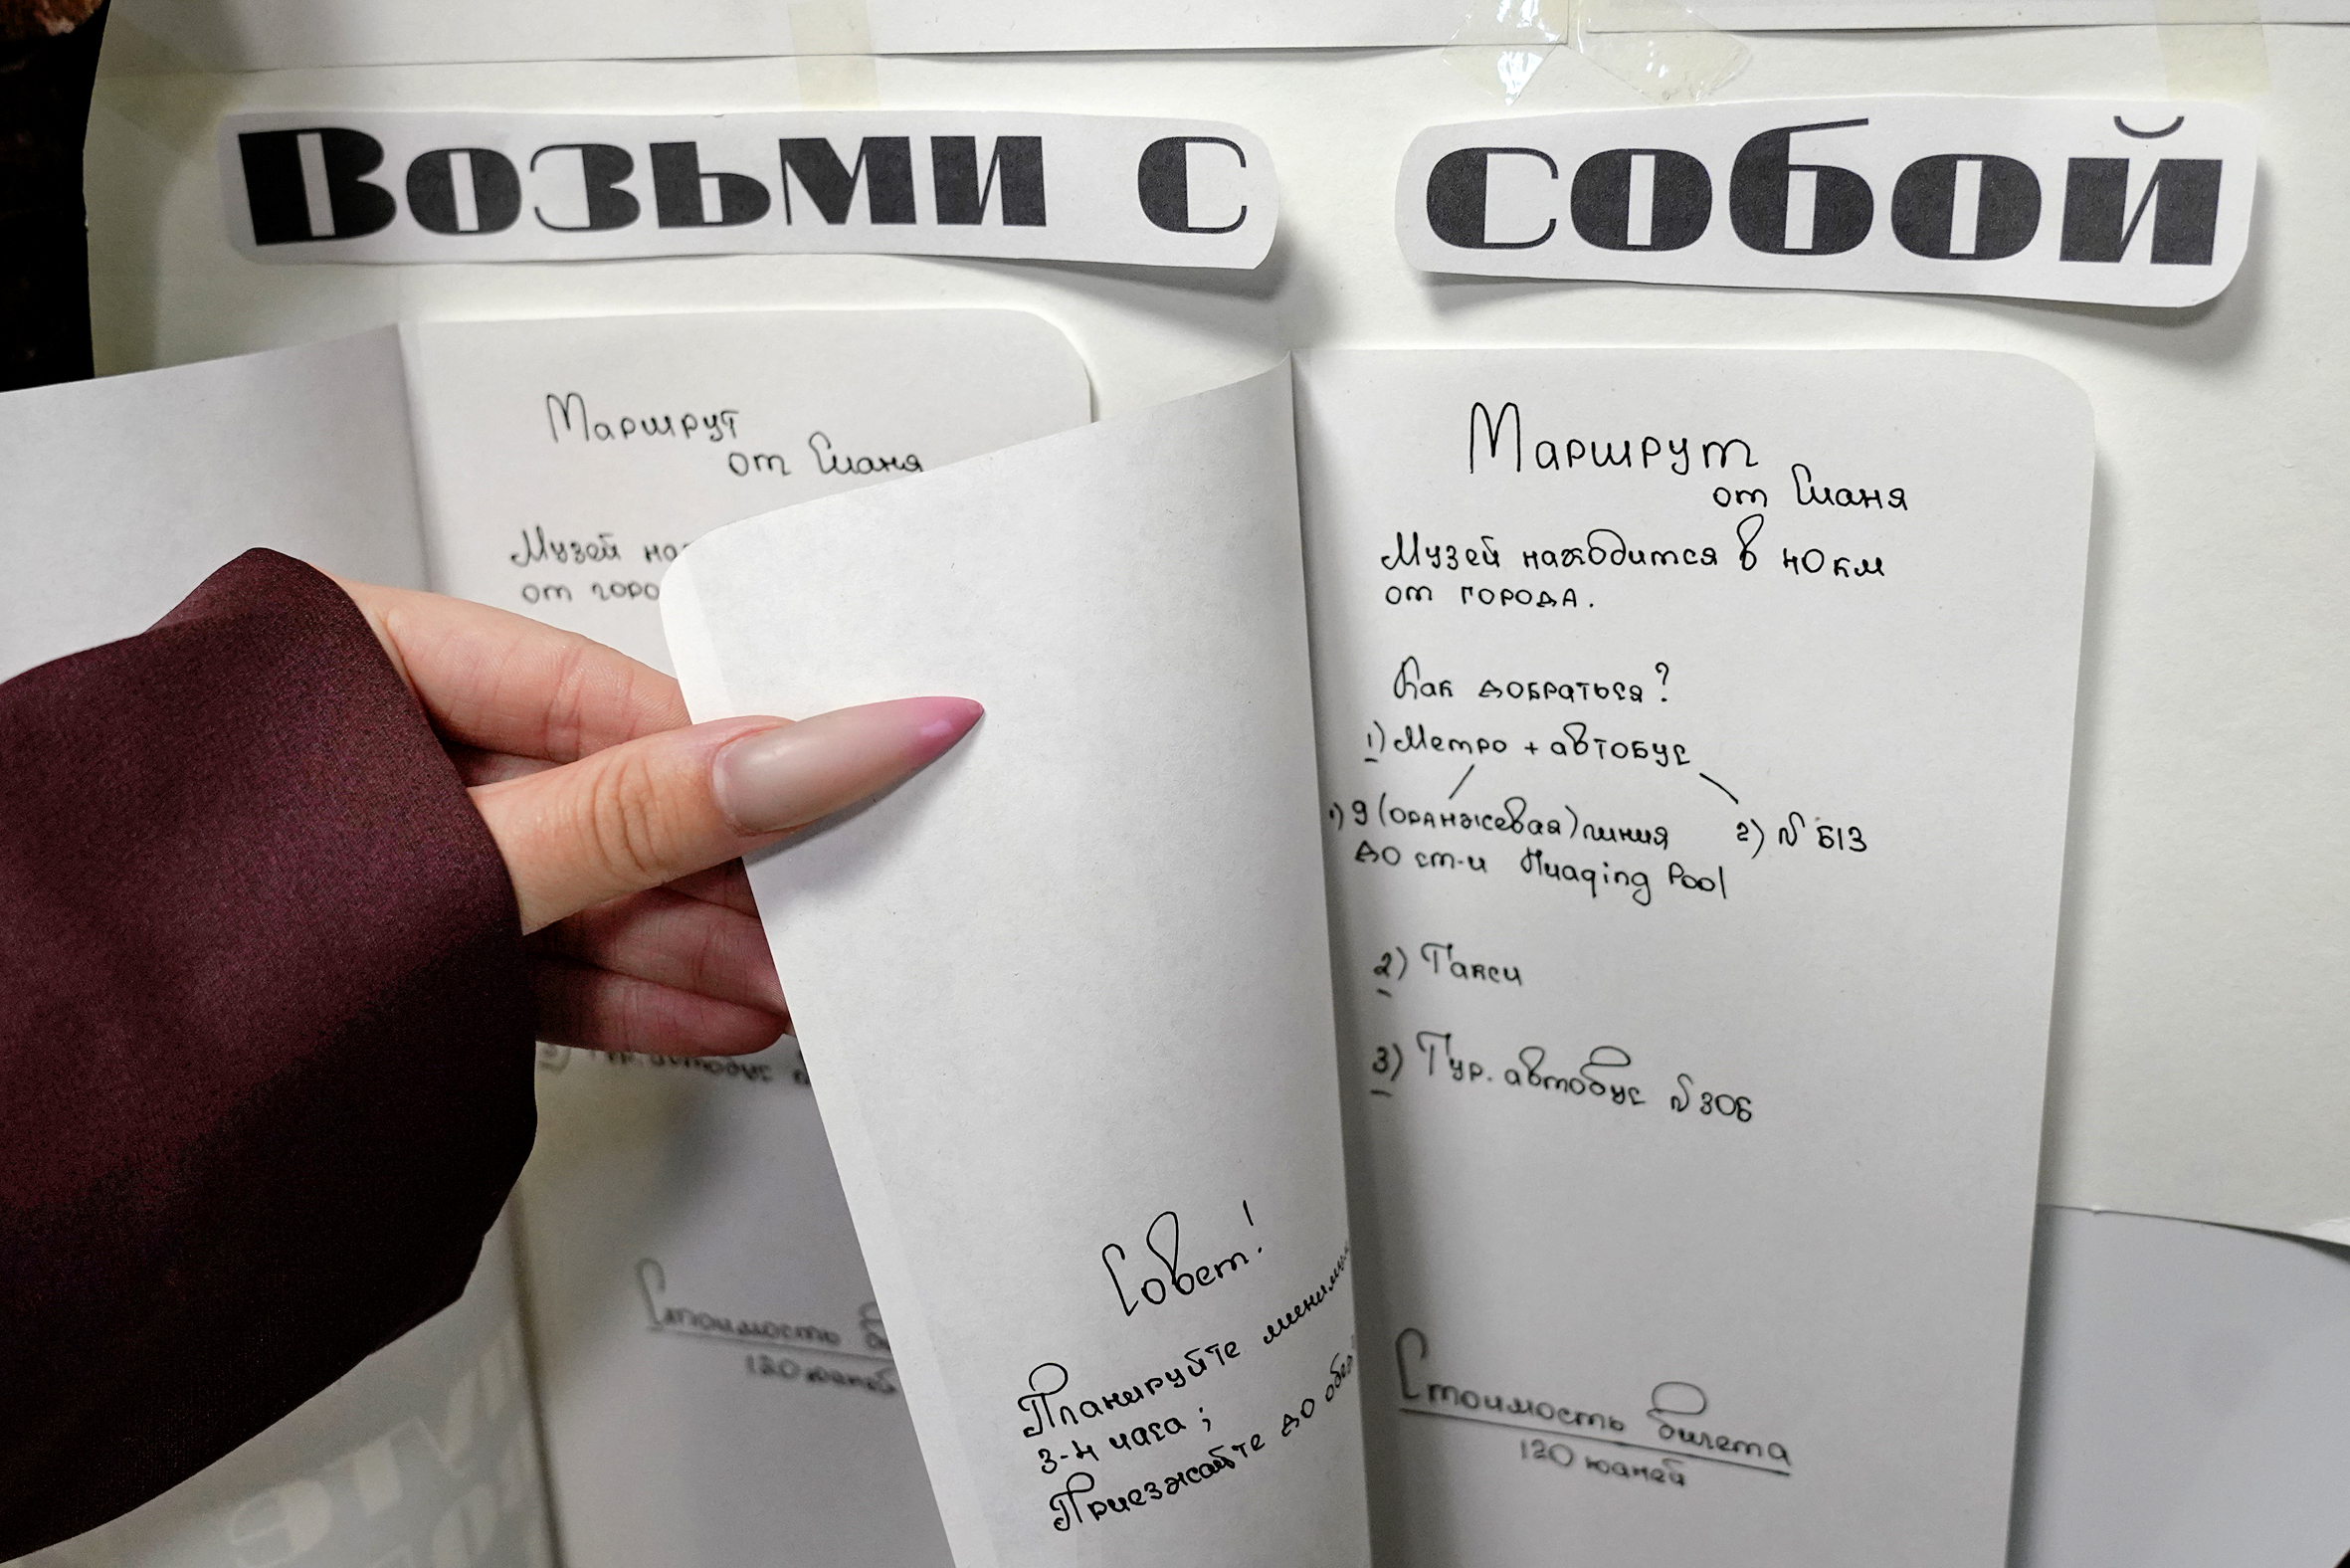 Возьми с собой
Маршрут
от Сианя
Музей
от
Стоимость
120 юаней
Совет!
Планируйте
3-4 часа;
Приезжайте до
Маршрут
от Сианя
Музей находится в 40 км
от города.
Как добраться?
1) Метро + автобус
1) 9 (оранжевая) линия 2) № 613
до ст-и Huaqing Pool
2) Такси
3) Тур. автобус № 306
Стоимость билета
120 юаней